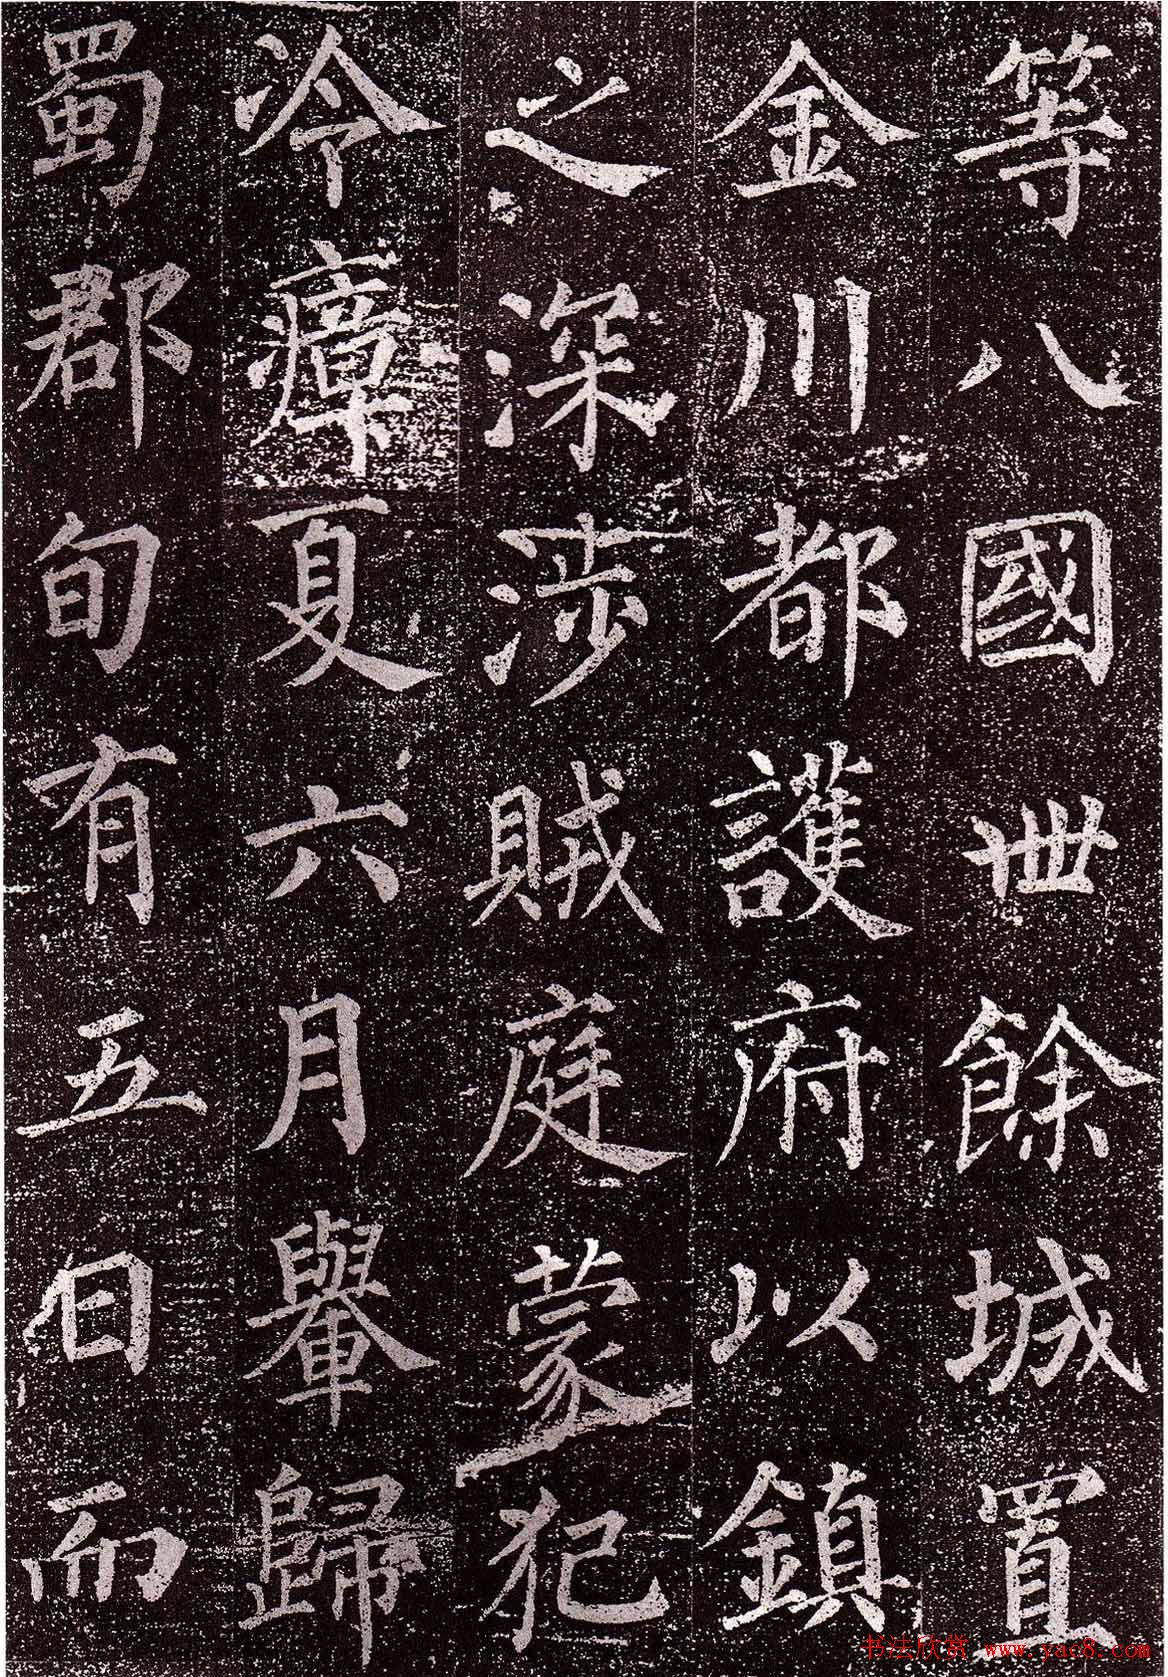 等八國卌餘城置
金川都護府以鎮
之深涉賊庭蒙犯
冷瘴夏六月轝歸
蜀郡旬有五日而
书法欣赏 www.yac8.com